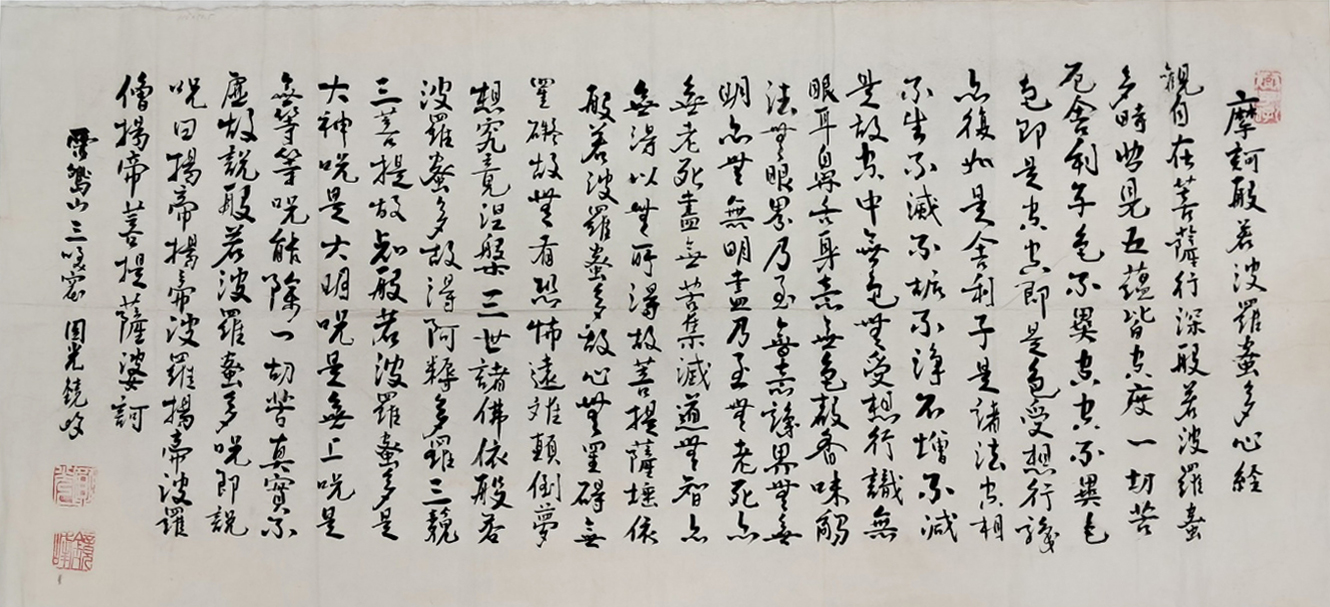 摩訶般若波羅蜜多心経
觀自在菩薩行深般若波羅蜜
多時照見五蘊皆空度一切苦
厄舍利子色不異空空不異色
色即是空空即是色受想行識
亦復如是舍利子是諸法空相
不生不滅不垢不淨不增不減
是故空中無色無受想行識無
眼耳鼻舌身意無色聲香味觸
法無眼界乃至無意識界無無
明亦無無明盡乃至無老死亦
無老死盡無苦集滅道無智亦
無得以無所得故菩提薩埵依
般若波羅蜜多故心無罣碍無
罣礙故無有恐怖遠離顛倒夢
想究竟涅槃三世諸佛依般若
波羅蜜多故得阿耨多羅三藐
三菩提故知般若波羅蜜多是
大神呪是大明呪是無上呪是
無等等呪能除一切苦真實不
虛故說般若波羅蜜多呪即說
呪曰揭帝揭帝波羅揭帝波羅
僧揭帝菩提薩婆訶
山三光鏡